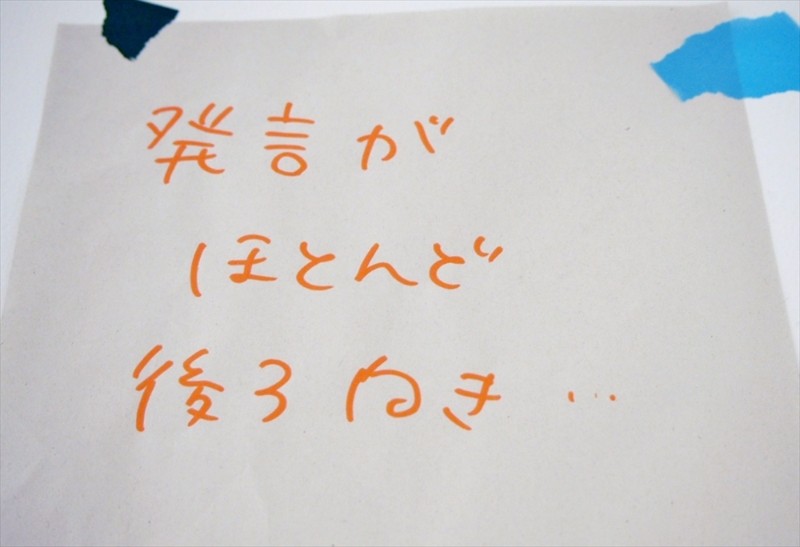 発言が
ほとんど
後ろ向き…